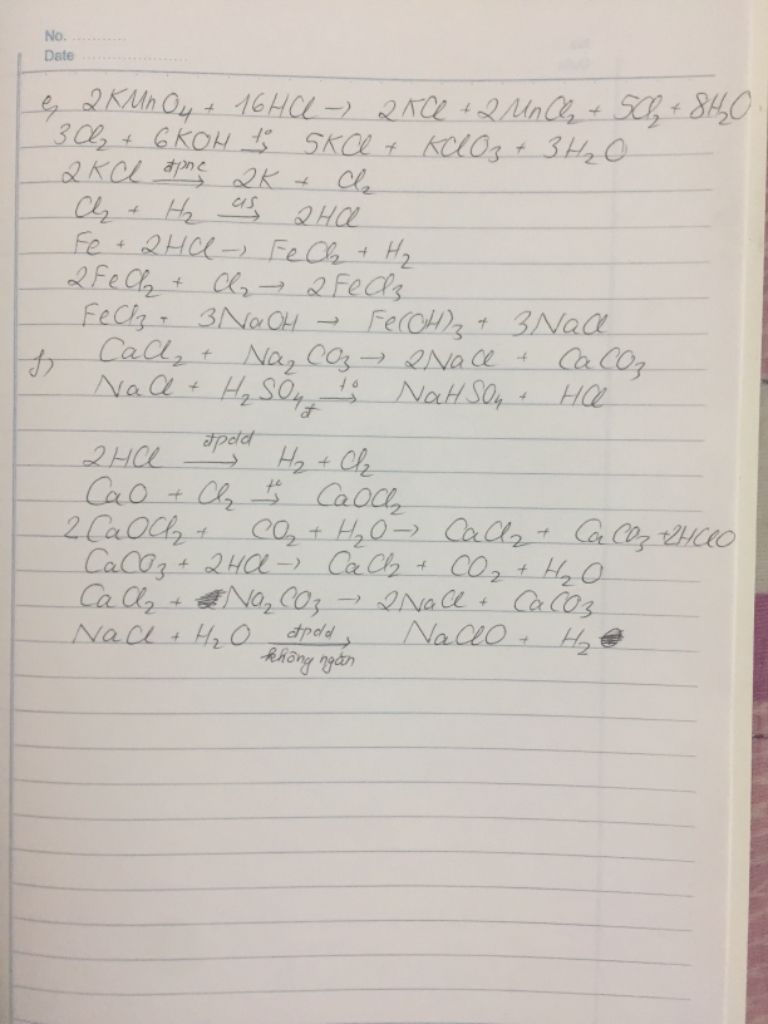 No. ...........
Date .....................
e, 2KMnO₄ + 16HCl → 2KCl + 2MnCl₂ + 5Cl₂ + 8H₂O
3Cl₂ + 6KOH t° → 5KCl + KClO₃ + 3H₂O
2KCl đpnc → 2K + Cl₂
Cl₂ + H₂ as → 2HCl
Fe + 2HCl → FeCl₂ + H₂
2FeCl₂ + Cl₂ → 2FeCl₃
FeCl₃ + 3NaOH → Fe(OH)₃ + 3NaCl
f) CaCl₂ + Na₂CO₃ → 2NaCl + CaCO₃
NaCl + H₂SO₄ đ t° → NaHSO₄ + HCl
2HCl đpdd → H₂ + Cl₂
CaO + Cl₂ t° → CaOCl₂
2CaOCl₂ + CO₂ + H₂O → CaCl₂ + CaCO₃ + 2HClO
CaCO₃ + 2HCl → CaCl₂ + CO₂ + H₂O
CaCl₂ + Na₂CO₃ → 2NaCl + CaCO₃
NaCl + H₂O đpdd → không ngăn NaClO + H₂